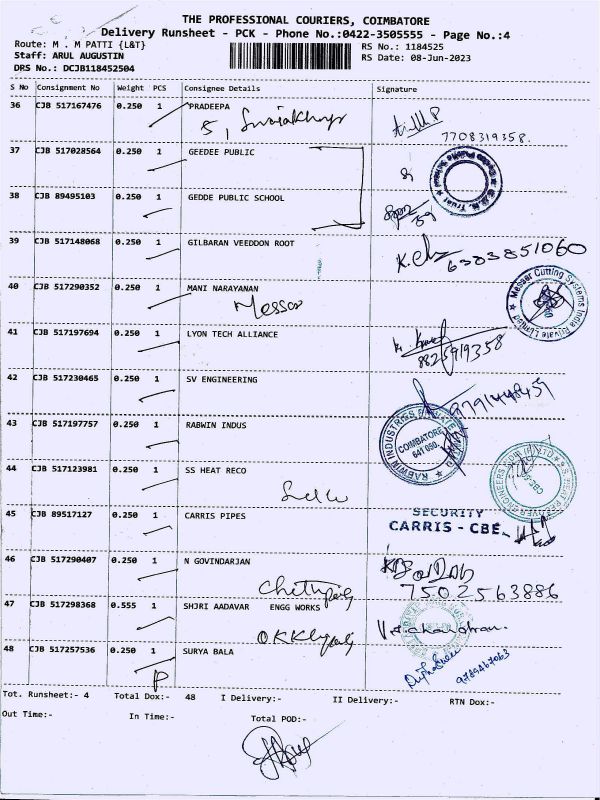 THE PROFESSIONAL COURIERS, COIMBATORE
Delivery Runsheet - PCK - Phone No.:0422-3505555 - Page No.:4
Route: M . M PATTI {L&T} RS No.: 1184525
Staff: ARUL AUGUSTIN RS Date: 08-Jun-2023
DRS No.: DCJB118452504
S No Consignment No Weight PCS Consignee Details Signature
36 CJB 517167476 0.250 1 PRADEEPA
7708319358.
37 CJB 517028564 0.250 1 GEEDEE PUBLIC
38 CJB 89495103 0.250 1 GEDDE PUBLIC SCHOOL
39 CJB 517148068 0.250 1 GILBARAN VEEDDON ROOT
6383851060
40 CJB 517290352 0.250 1 MANI NARAYANAN
Messer
Messer Cutting Systems India Private Limited
41 CJB 517197694 0.250 1 LYON TECH ALLIANCE
8825919358
42 CJB 517230465 0.250 1 SV ENGINEERING
43 CJB 517197757 0.250 1 RABWIN INDUS
RABWIN INDUSTRIES PRIVATE
COIMBATORE
641 050.
44 CJB 517123981 0.250 1 SS HEAT RECO
45 CJB 89517127 0.250 1 CARRIS PIPES
SECURITY
CARRIS - CBE
46 CJB 517290407 0.250 1 N GOVINDARJAN
7502563886
47 CJB 517298368 0.555 1 SHJRI AADAVAR ENGG WORKS
48 CJB 517257536 0.250 1 SURYA BALA
9789467063
P
Tot. Runsheet:- 4 Total Dox:- 48 I Delivery:- II Delivery:- RTN Dox:-
Out Time:- In Time:- Total POD:-